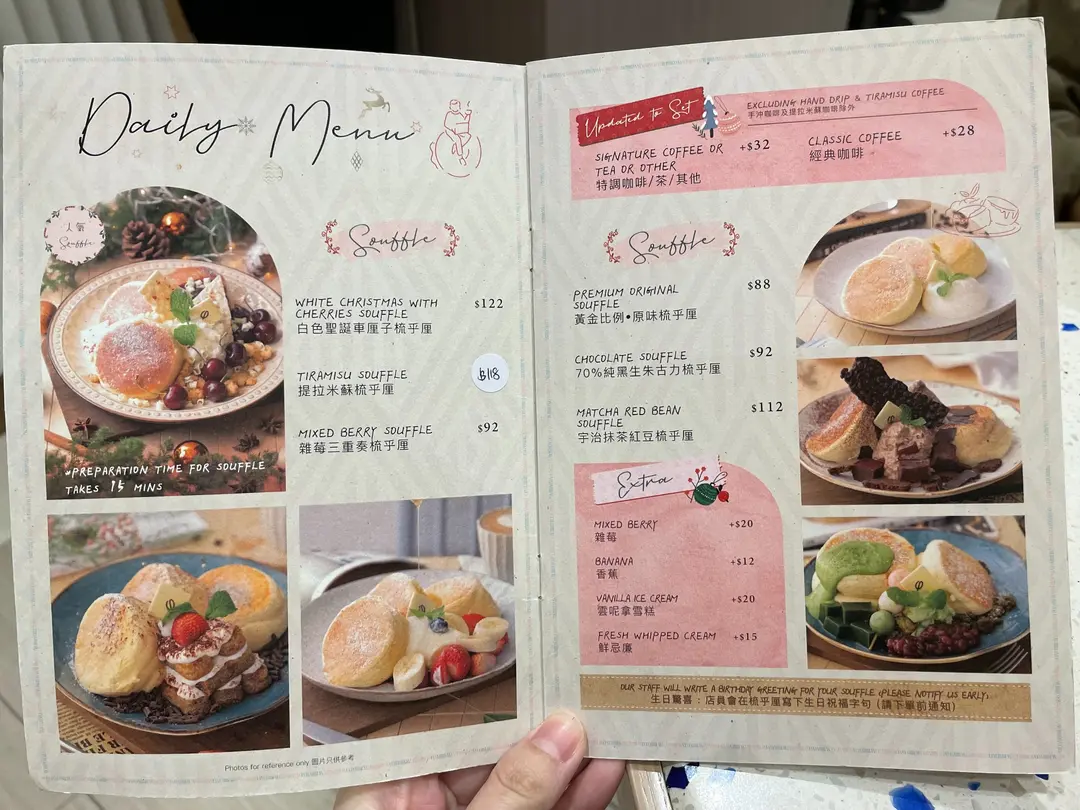 Daily Menu
人氣
Souffle
Souffle
WHITE CHRISTMAS WITH $122
CHERRIES SOUFFLE
白色聖誕車厘子梳乎厘
TIRAMISU SOUFFLE $118
提拉米蘇梳乎厘
MIXED BERRY SOUFFLE $92
雜莓三重奏梳乎厘
*PREPARATION TIME FOR SOUFFLE
TAKES 15 MINS
Photos for reference only 圖片只供參考
Updated to Set
EXCLUDING HAND DRIP & TIRAMISU COFFEE
手沖咖啡及提拉米蘇咖啡除外
SIGNATURE COFFEE OR +$32
TEA OR OTHER
特調咖啡/茶/其他
CLASSIC COFFEE +$28
經典咖啡
Souffle
PREMIUM ORIGINAL $88
SOUFFLE
黃金比例•原味梳乎厘
CHOCOLATE SOUFFLE $92
70%純黑生朱古力梳乎厘
MATCHA RED BEAN $112
SOUFFLE
宇治抹茶紅豆梳乎厘
Extra
MIXED BERRY +$20
雜莓
BANANA +$12
香蕉
VANILLA ICE CREAM +$20
雲呢拿雪糕
FRESH WHIPPED CREAM +$15
鮮忌廉
OUR STAFF WILL WRITE A BIRTHDAY GREETING FOR YOUR SOUFFLE (PLEASE NOTIFY US EARLY)
生日驚喜：店員會在梳乎厘寫下生日祝福字句 (請下單前通知)